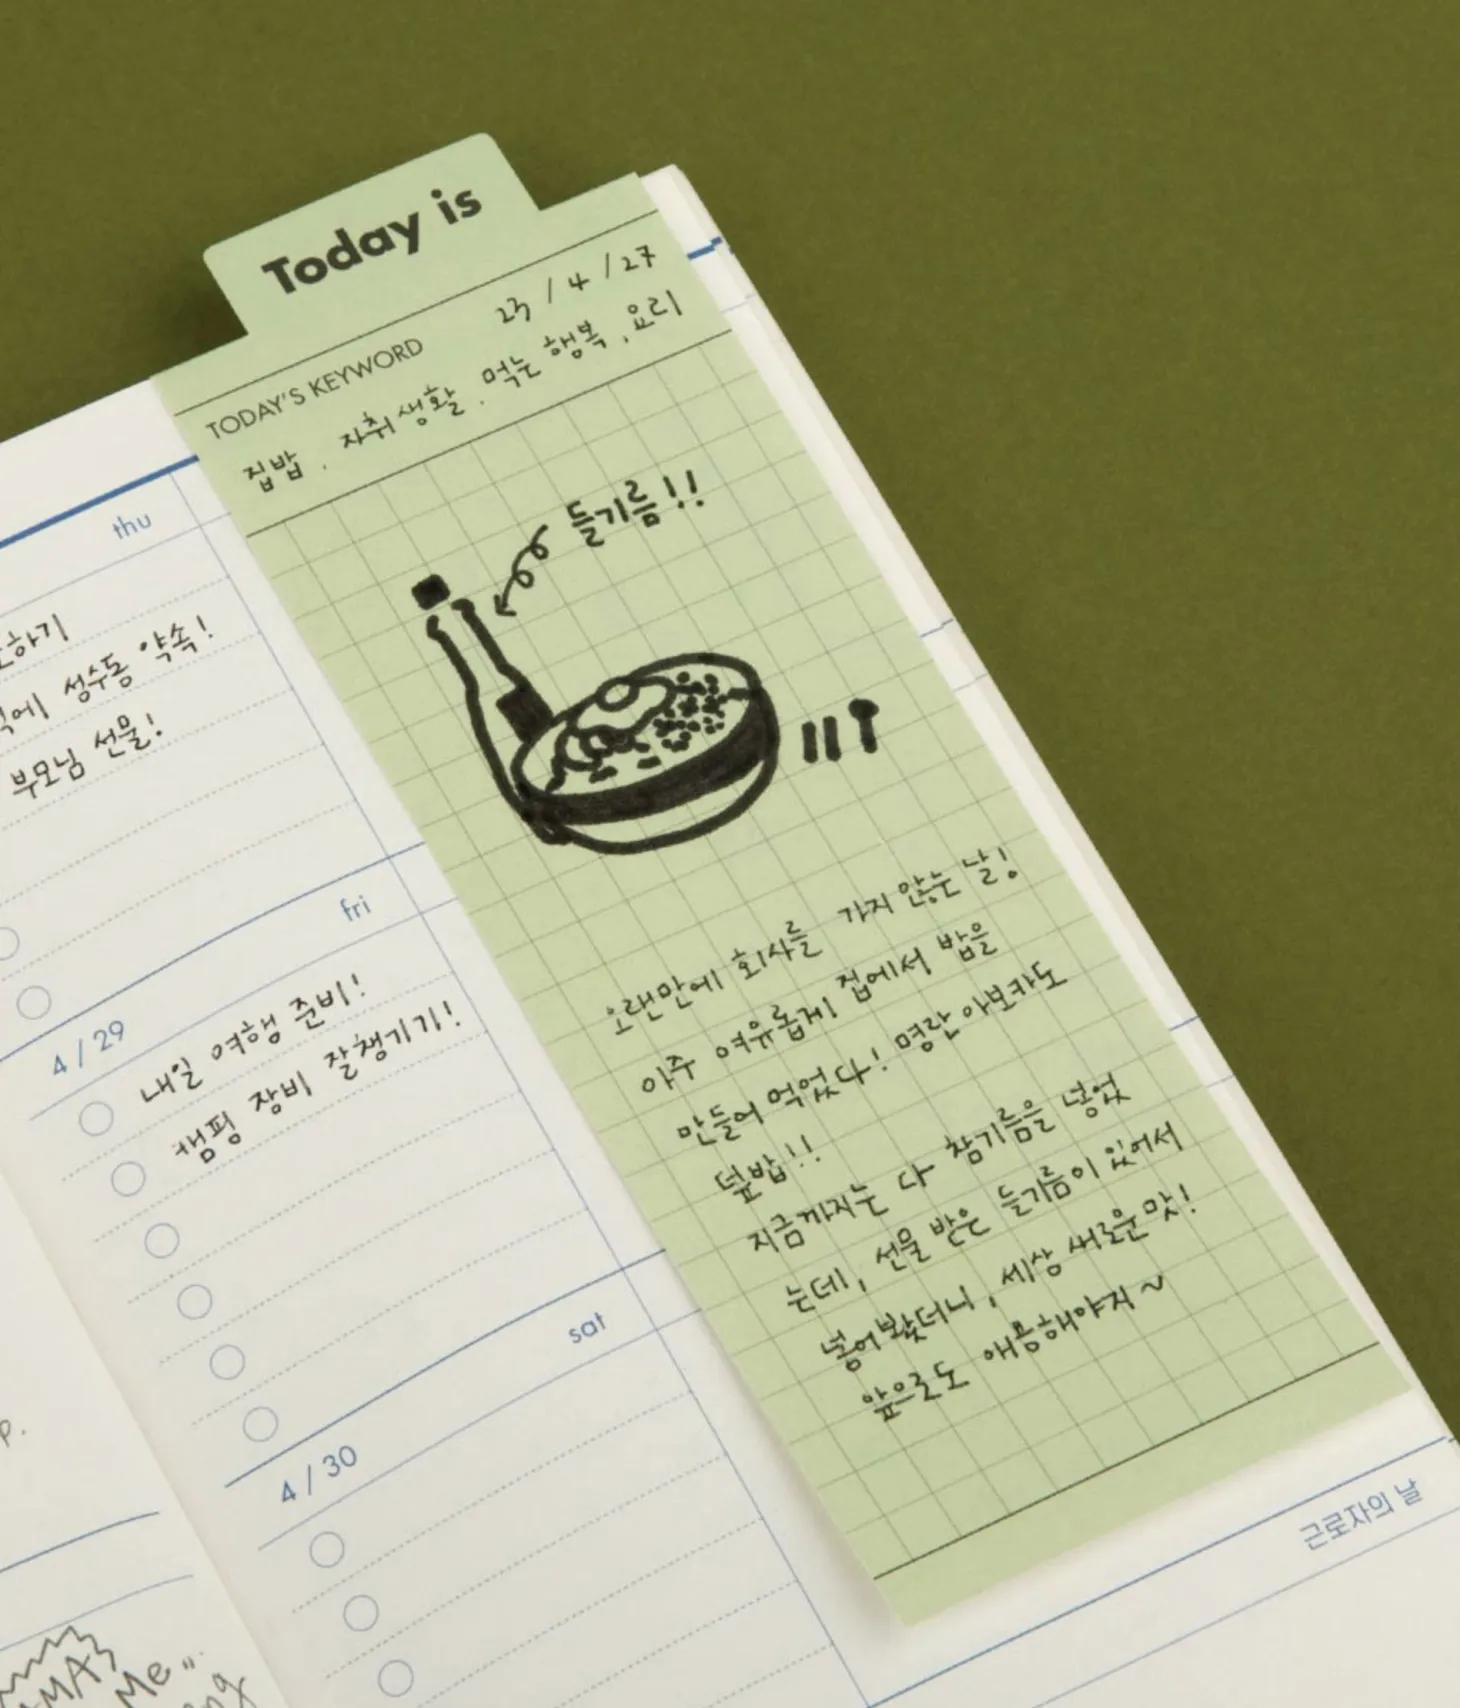 Today is
TODAY'S KEYWORD
23 / 4 / 27
집밥 . 자취생활 . 먹는 행복 , 요리
들기름!!
오랜만에 회사를 가지 않는 날!
아주 여유롭게 집에서 밥을
만들어 먹었다! 명란 아보카도
덮밥!!
지금까지는 다 참기름을 넣었
는데, 선물 받은 들기름이 있어서
넣어봤더니, 세상 새로운 맛!
앞으로도 애용해야지~
thu
하기
에 성수동 약속!
부모님 선물!
fri
4 / 29
내일 여행 준비!
캠핑 장비 잘챙기기!
sat
4 / 30
근로자의 날
p.
MA
Me"
ng